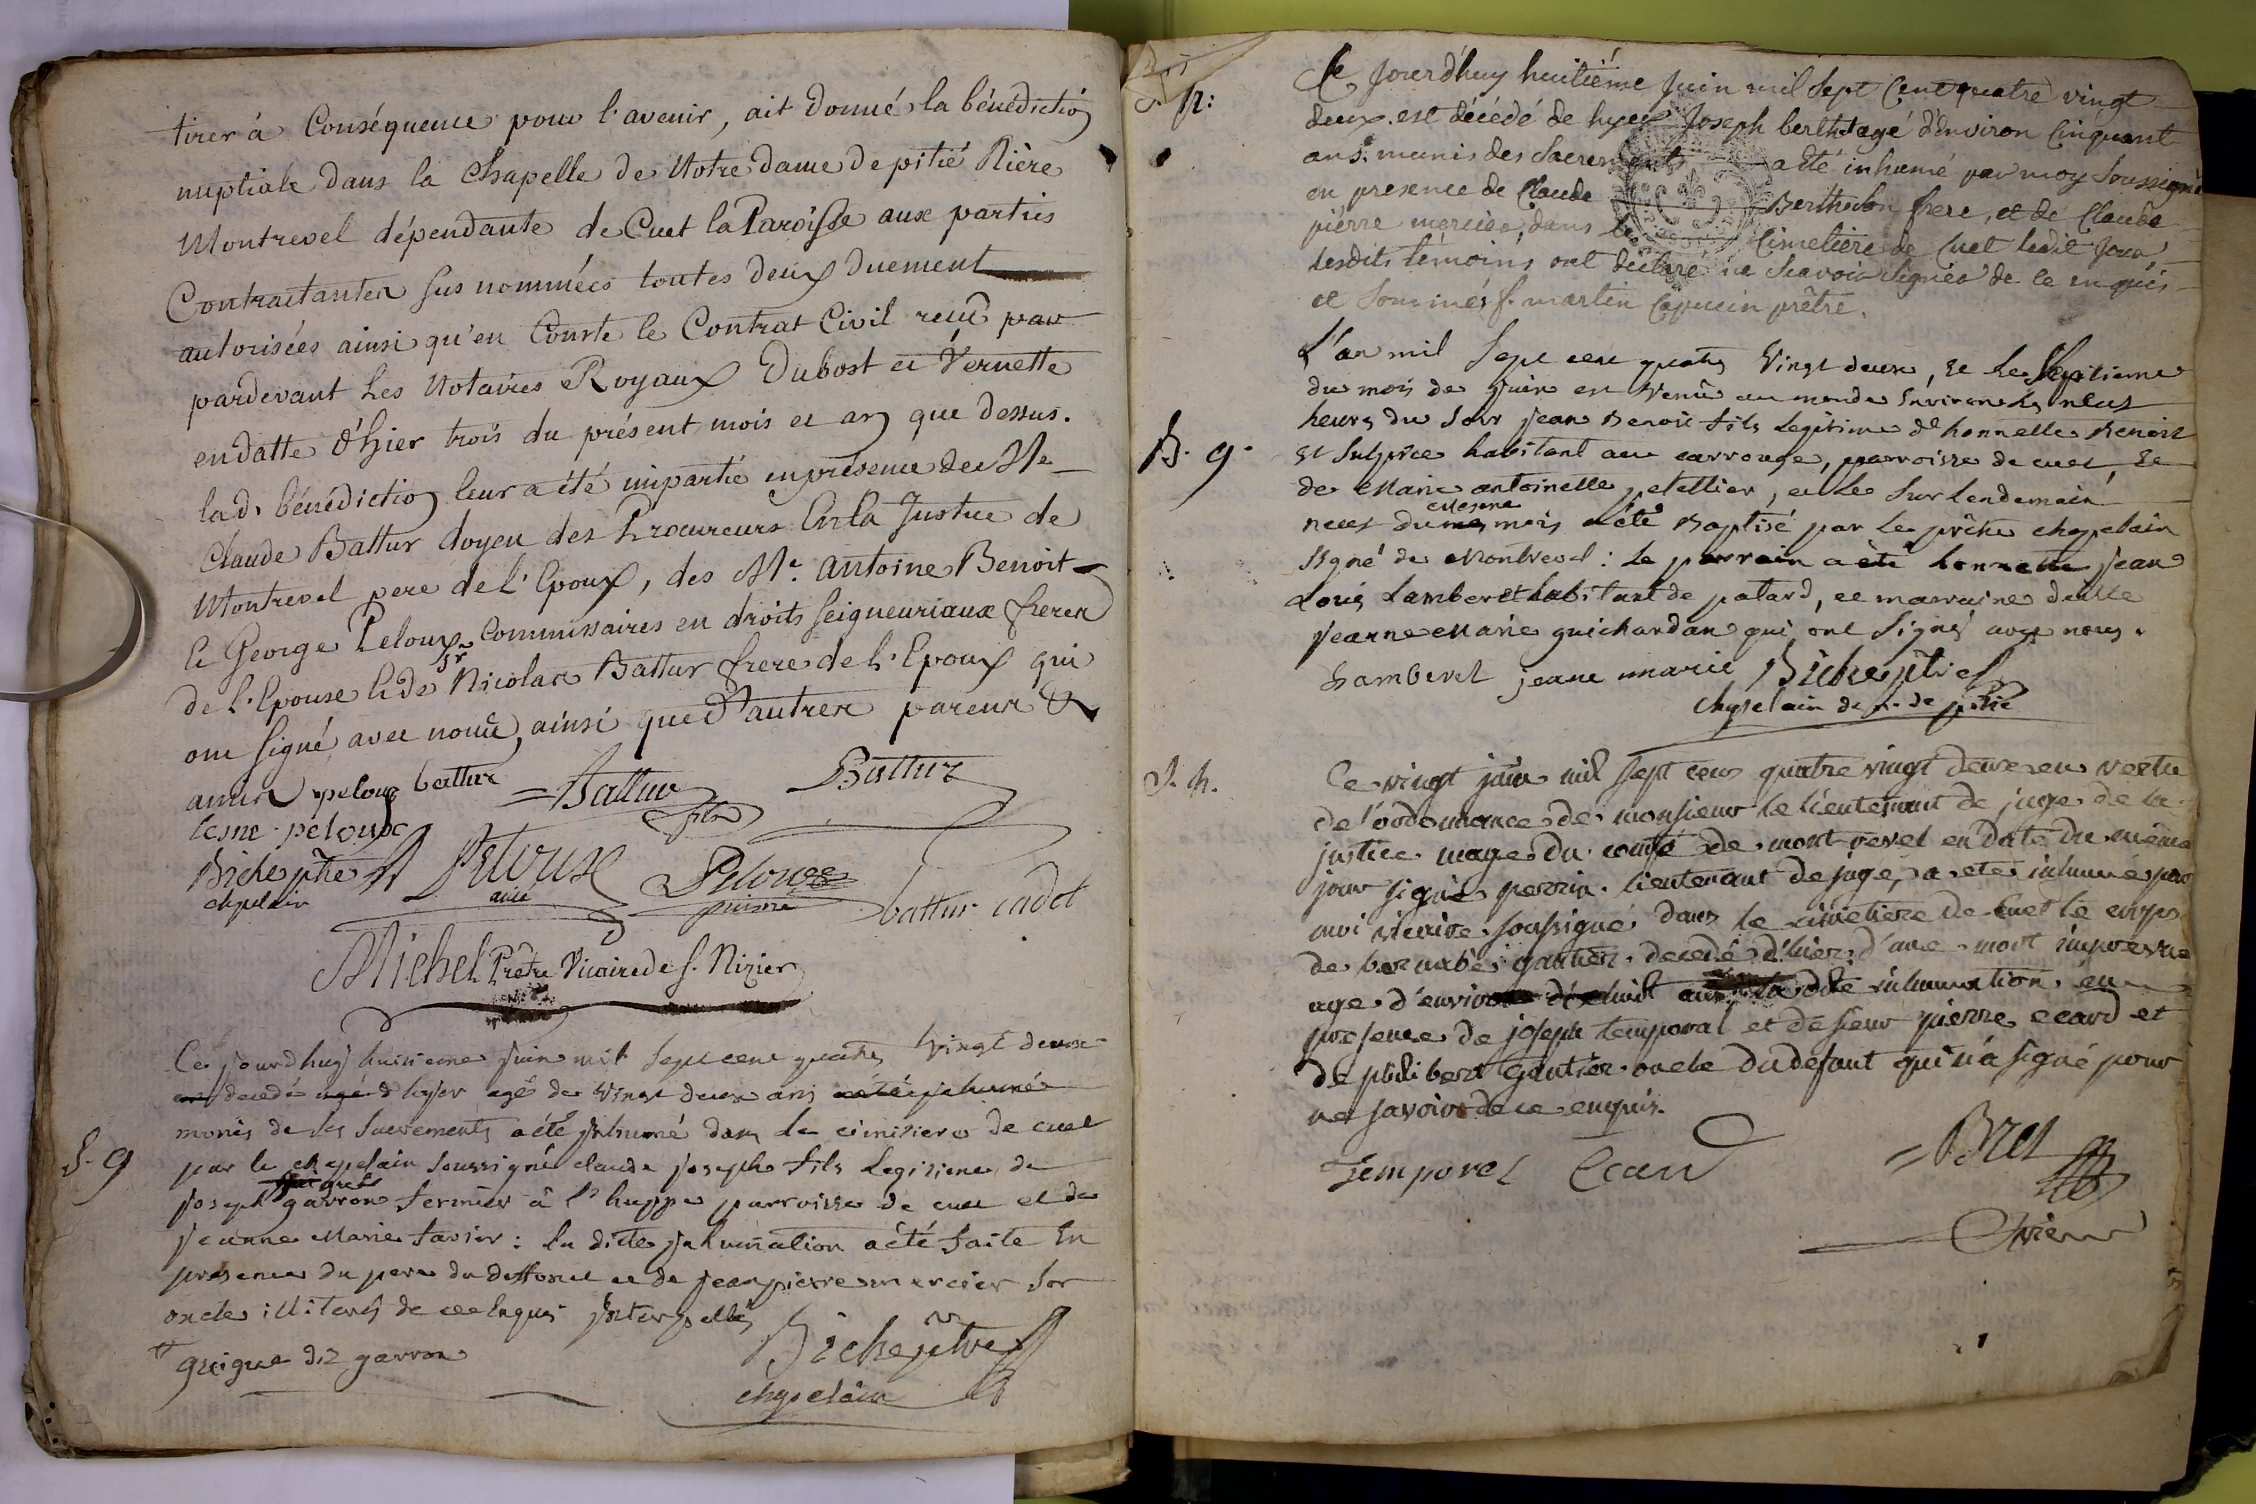 tirer à Conséquence pour l'avenir, ait donné la bénédictiõ
nuptiale dans la Chapelle de Notre dame de pitié Rière
Montrevel dépendante de Cuet la Paroisse aux parties
Contractantes sus nommées toutes deux duement
autorisées ainsi qu'en Conste le Contrat Civil reçû par
pardevant Les Notaires Royaux Dubost et Vernette
en datte d'hier trois du présent mois et an que dessus.
lad. bénédiction leur a été impartie en présence de Me
Claude Battur doyen des Procureurs En la Justice de
Montrevel pere de l'Epoux, des Me. Antoine Benoit
et George Peloux Commissaires en droits seigneuriaux freres
de l'Epouse et de Sr Nicolas Battur frere de l'Epoux qui
ont signé avec nous, ainsi que d'autres parens &
amis peloux battur = Battur fils Battur
peloux
Biche ptre chapelain Peloux ainé Peloux puisné battur cadet
Michel Prêtre Vicaire de S. Nizier
Ce jourdhuy huitieme juin mil sept cent quatre vingt deux
decedé d'hyer agé de vingt deux ans a été inhumé
munis de ses sacrements a été inhumé dans le cimitiere de cuet
S. g par le chapelain soussigné claude joseph fils legitime de
joseph garron fermier à l'huppe parroisse de cuet et de
jeanne Marie favier : la dicte inhumation a été faite En
presence du pere du deffunct et de jean pierre mercier son
oncle illiterés de ce Enquis interpellés
guigue dit garron Biche ptre
chapelain
S. p: Ce jourd'huy huitiéme juin mil sept cent quatre vingt
deux. est décédé de hyer Joseph berthet agé d'environ cinquant
ans. munis des sacrements a été inhumé par moy soussigné
en presence de Claude Berthelon frere, et de Claude
pierre mercier, dans le Cimetiere de Cuet ledit jour
lesdits témoins ont déclaré ne scavoir signer de ce enquis
et sommés f. martin capucin prêtre.
L'an mil sept cent quatre vingt deux, et le septieme
du mois de juin est venu au monde Environ les neuf
heures du soir jean Benoit fils legitime d'honnette Benoit
B. g. St Sulpice habitant au carrouge, parroisse de cuet et
de Marie antoinette peletier, et le surlendemain
neuf du mesme mois a été Baptisé par le prêtre chapelain
signé de Montrevel : le parrain a été honnette jean
Louis Lamberet habitant de patard, et marraine
jeanne Marie guichardan qui ont signé avec nous.
Lamberet jeane marie Biche ptre
chapelain de n. de pitié
S. h. Ce vingt juin mil sept cens quatre vingt deux en vertu
de l'ordonnance de monsieur le lieutenant de juge de la
justice mage du comté de mont-revel en date du même
jour signée perrin. lieutenant de juge, a eté inhumé par
moi vicaire soussigné dans le cimetiere de Cuet le corps
de bernabé gautier. decedé d'hier d'une mort imprevue
age d'environ dixhuit ans la dite inhumation. en
presence de joseph temporal et de sieur pierre ecard et
de philibert gautier. oncle du defunt qui n'a signé pour
ne savoir de ce enquis.
Temporel Ecard = Bret
vicaire